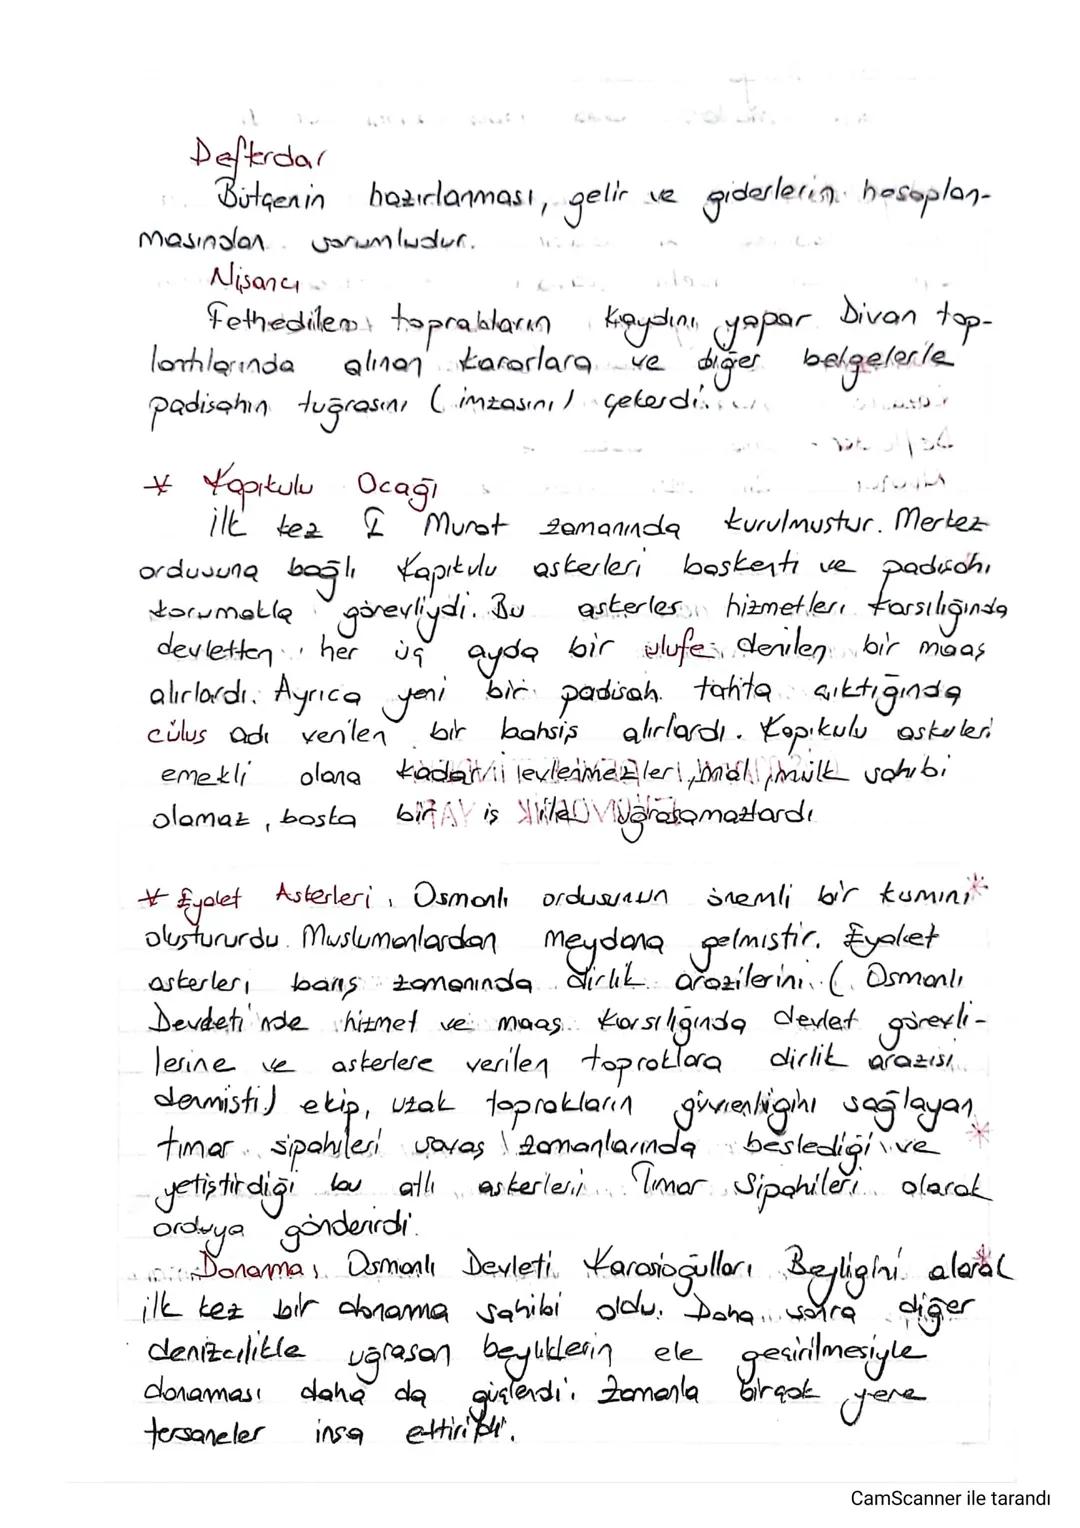 Defterdar
Bütçenin hazırlanması, gelir ve giderlerin hesaplan-
masından sorumludur.
Nişancı
Fethedilen toprakların kaydını yapar Divan top-
lantılarında alınan kararlara ve diğer belgelerle
padişahın tuğrasını (imzasını) çekerdi.
* Kapıkulu Ocağı
ilk kez I Murat zamanında kurulmustur. Merkez
ordusuna bağlı Kapıkulu askerleri baskenti ve padisahı
korumakla görevliydi. Bu askerler hizmetleri karsılığında
devletten her üç ayda bir ulufe denilen bir maas
alırlardı. Ayrıca yeni bir padisah tahta çıktığında
cülus adı verilen bir bahsis alırlardı. Kapıkulu askerleri
emekli olana kadar evlenmezler, mal mülk sahibi
olamaz, baska bir is ile uğrasamazlardı
* Eyalet Askerleri, Osmanlı ordusunun önemli bir kısmını *
olustururdu. Muslumanlardan meydana gelmistir. Eyalet
askerleri barıs zamanında dirlik arazilerini (Osmanlı
Devleti'nde hizmet ve maas karsılığında devlet görevli-
lerine ve askerlere verilen topraklara dirlik arazisi
denmisti) ekip, uzak toprakların güvenliğini sağlayan
tımar sipahileri savas zamanlarında beslediği ve *
yetiştirdiği bu atlı askerleri Tımar Sipahileri olarak
orduya gönderirdi.
Donanma, Osmanlı Devleti Karasioğulları Beyliğini alarak *
ilk kez bir donanma sahibi oldu. Daha sonra diğer
denizcilikle uğrasan beyliklerin ele geçirilmesiyle
donanması daha da güçlendi. Zamanla birçok yere
tersaneler insa ettirildi.
CamScanner ile tarandı